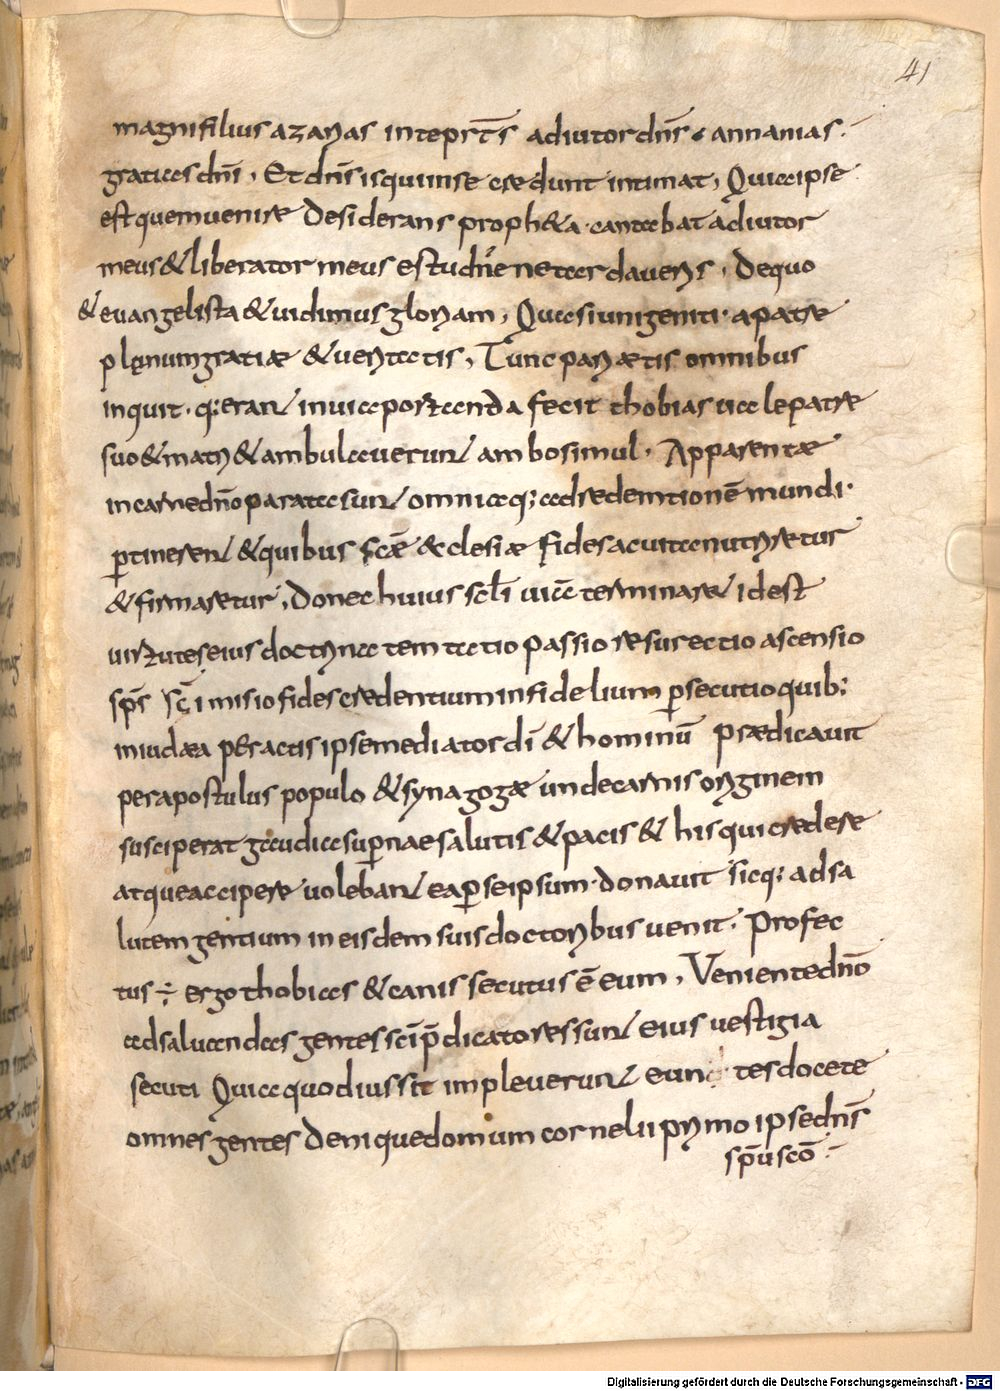 41
magni filius azarias interprt̄s adiutor dn̄s annanias.
gratias dn̄i, Et dn̄s is qui in se credunt intimat, Quia ipse
est quem uenire desiderans proph&a cantabat adiutor
meus & liberator meus es tu dn̄e ne tardaueris, De quo
& euangelista & uidimus gloriam, Quasi unigeniti a patre
plęnum gratiæ & ueritatis, Tunc paratis omnibus
inquit q; erant in uia portanda fecit thobias uale patre
suo & matri & ambulauerunt ambo simul. Apparente
in carne dn̄o parata sunt omnia q; ad redemtionē mundi
ꝑtinerent & quibus scǣ æclesiæ fides ac uita nutriretur
& firmaretur, Donec huius scl̄i uita terminaret idest
uirtutes eius doctrina temtatio passio resurectio ascensio
sp̄s sc̄i misio fides credentium infidelium ꝑsecutio quib;
in iudæa peractis ipse mediator dī & hominū prædicauit
per apostulus populo & synagogæ unde carnis originem
susciperat gaudia suꝑnae salutis & pacis & his qui credere
atque accipere uolebant ea ꝑ se ipsum donauit sicq; ad sa
lutem gentium in eisdem suis doctoribus uenit. Profec
tus ÷ ergo thobias & canis secutus ē eum, Veniente dn̄o
ad saluandas gentes sc̄i p̄dicatores sunt eius uestigia
secuti Quia quod iussit impleuerunt eun tes docete
omnes gentes denique domum cornelii primo ipse dn̄s
sp̄u scō
Digitalisierung gefördert durch die Deutsche Forschungsgemeinschaft - DFG